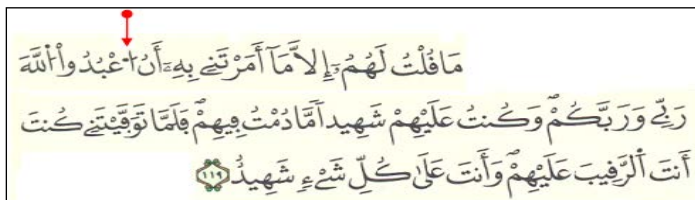 مَا قُلْتُ لَهُمُۥٓ إِلَّا مَآ أَمَرْتَنِے بِهِۦٓ أَنُ اُ۬عْبُدُواْ اُ۬للَّهَ
رَبِّے وَرَبَّكُمْۖ وَكُنتُ عَلَيْهِمْ شَهِيداٗ مَّا دُمْتُ فِيهِمْۖ فَلَمَّا تَوَفَّيْتَنِے كُنتَ
أَنتَ اَ۬لرَّقِيبَ عَلَيْهِمْۖ وَأَنتَ عَلَىٰ كُلِّ شَےْءٖ شَهِيدٌۖ ١١٩